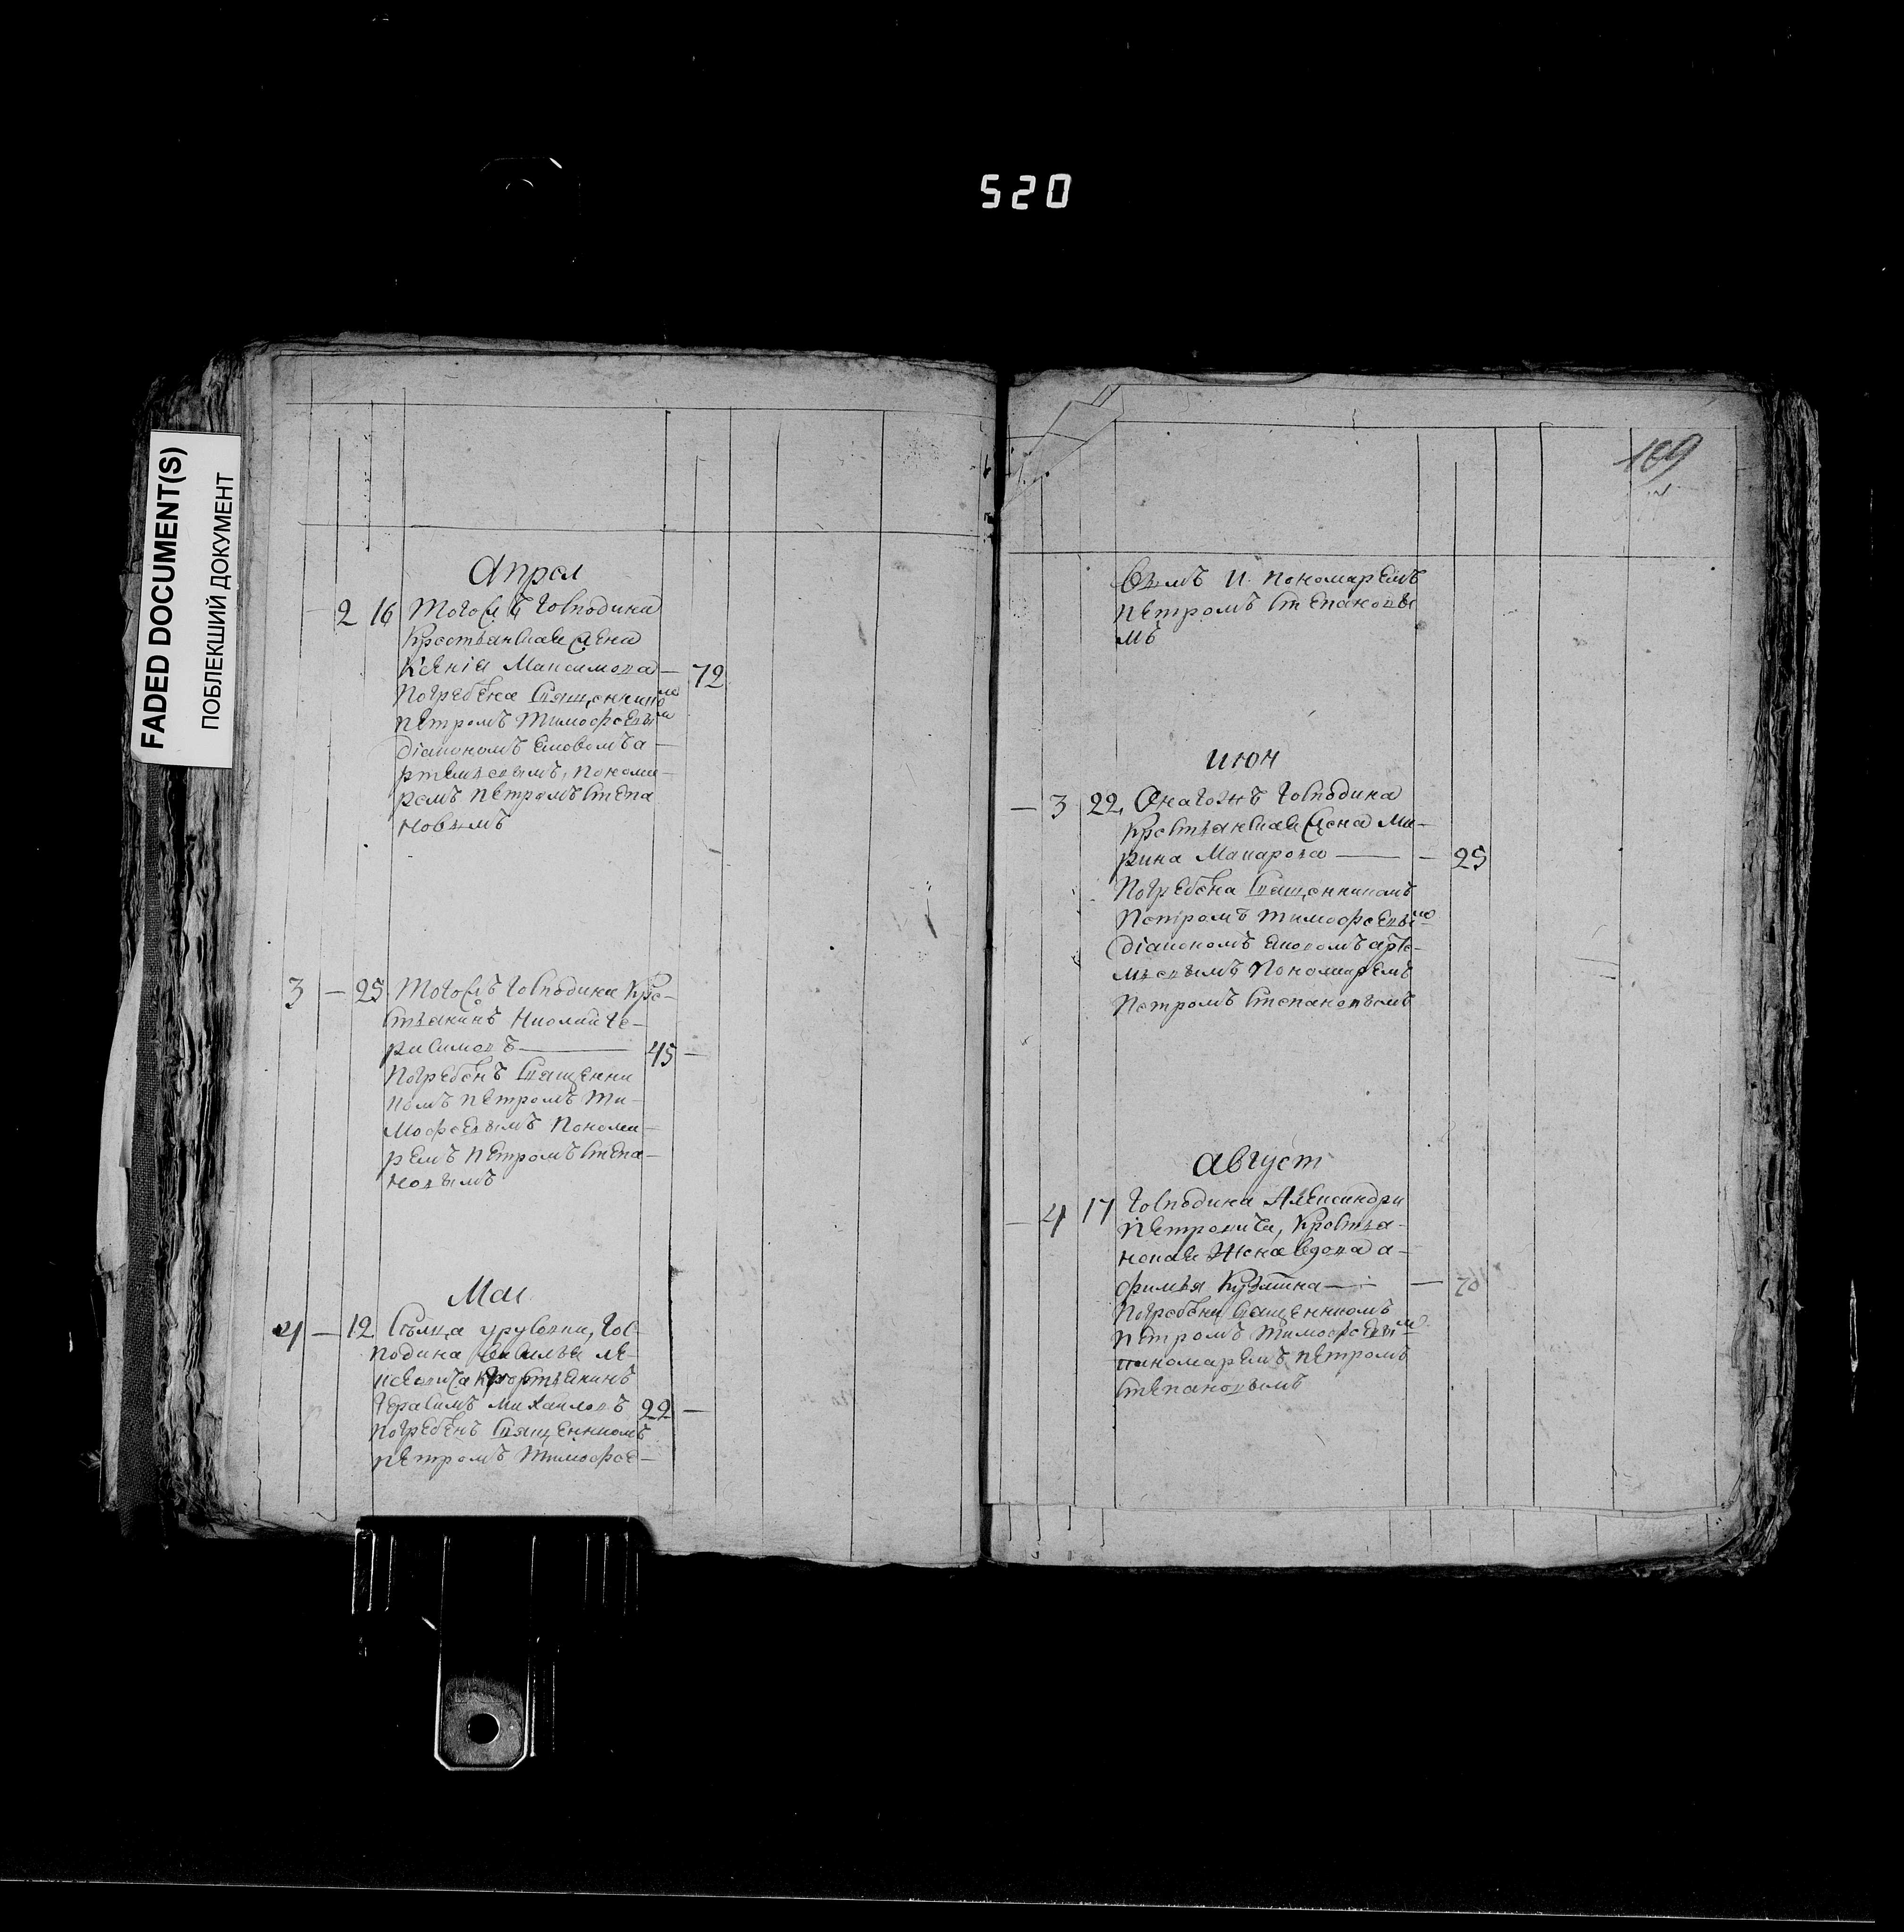 520
FADED DOCUMENT(S)
ПОБЛЕКШИЙ ДОКУМЕНТ
Апрел
2 16 тогожъ господина
крестьянская жена
Ксения Максимова — 72
погребена священникомъ
петромъ тимофеевым
діакономъ а-
ртемьевымъ, понома-
ремъ петромъ степа
новымъ
3 — 25 тогожъ господина кре-
стьянинъ Николай ге-
расимовъ — 45 —
погребенъ священни
комъ петромъ ти-
мофеевымъ понома-
ремъ петромъ степа-
новымъ
Маи
4 — 12 Сельца гос-
подина василья
крестьянинъ
герасимъ михаиловъ 22 —
погребенъ священикомъ
петромъ тимофее-
109
вымъ и пономаремъ
петромъ степановы
мъ
июн
— 3 22 Онагожъ господина
крестьянская жена ма-
рина макарова — — 25
погребена священникомъ
петромъ тимофеевым
діакономъ арте-
мьевымъ пономаремъ
петромъ степановымъ
август
— 4 17 господина Александра
петровича, крестья-
нская жена вдова а-
фимья — — 70
погребена священикомъ
петромъ тимофеевым
пономаремъ петромъ
степановымъ